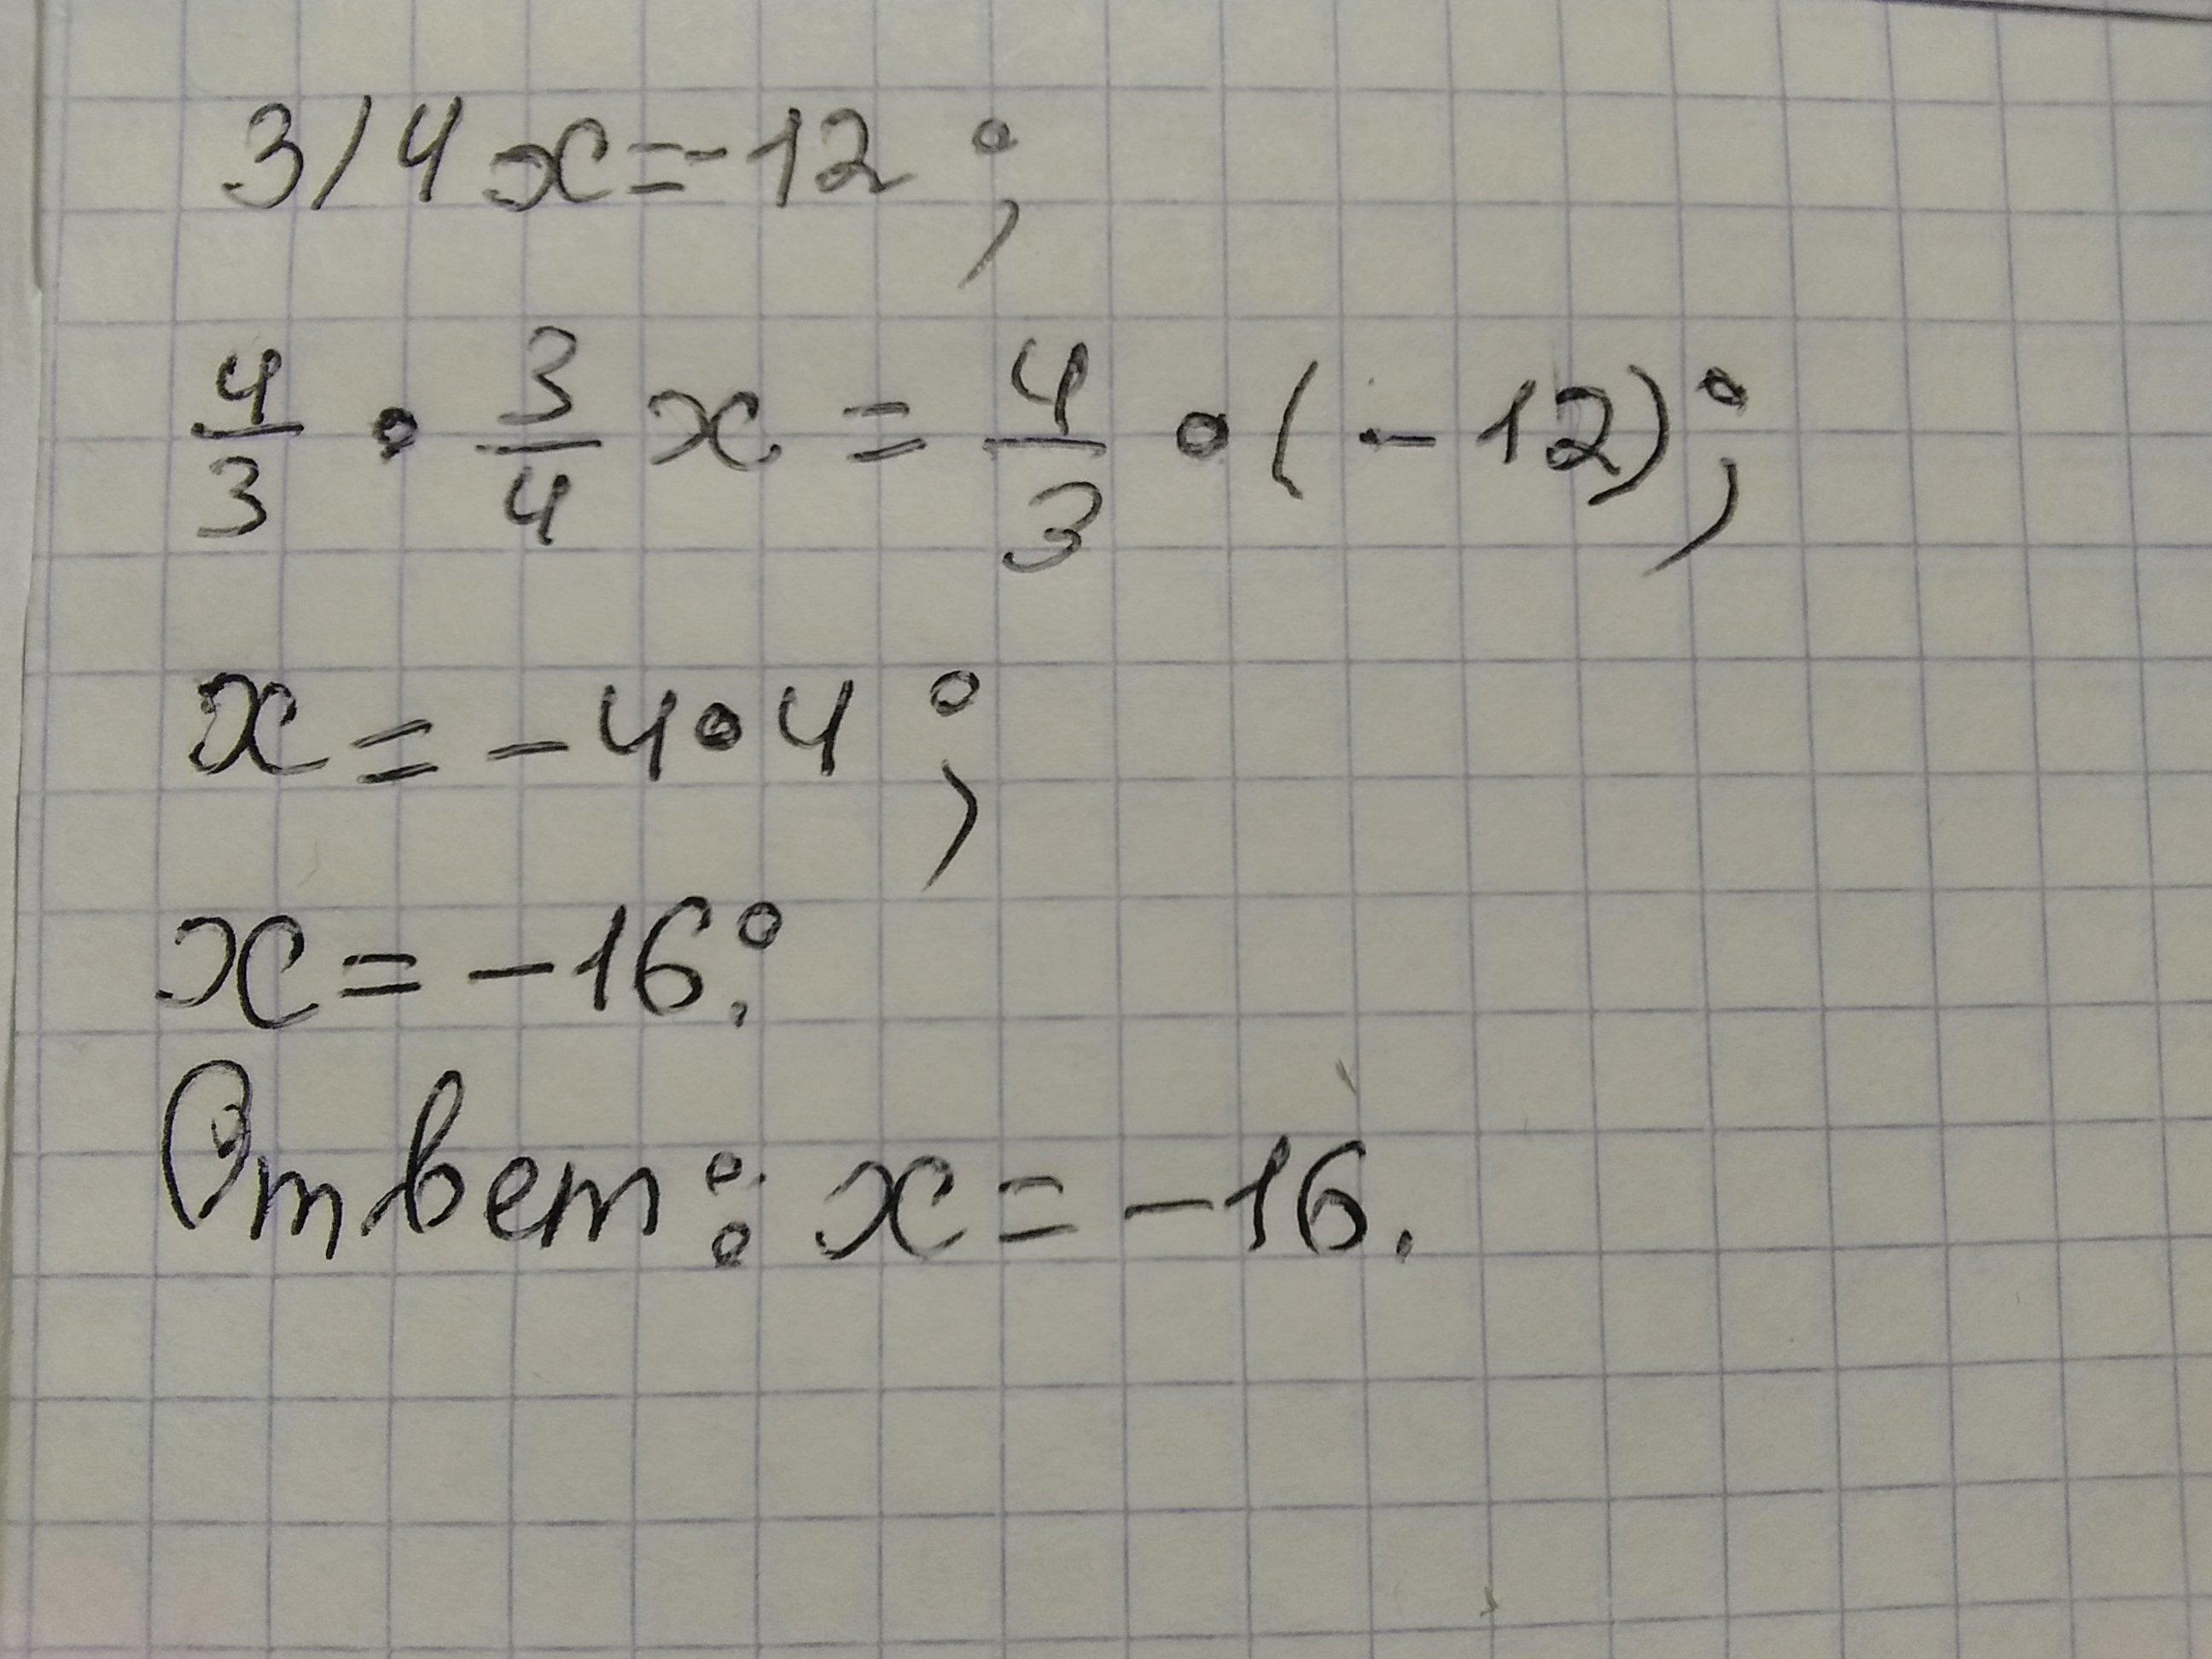 3/4x=-12;
4/3 • 3/4 x = 4/3 • (-12);
x = -4•4;
x = -16;
Ответ: x = -16.